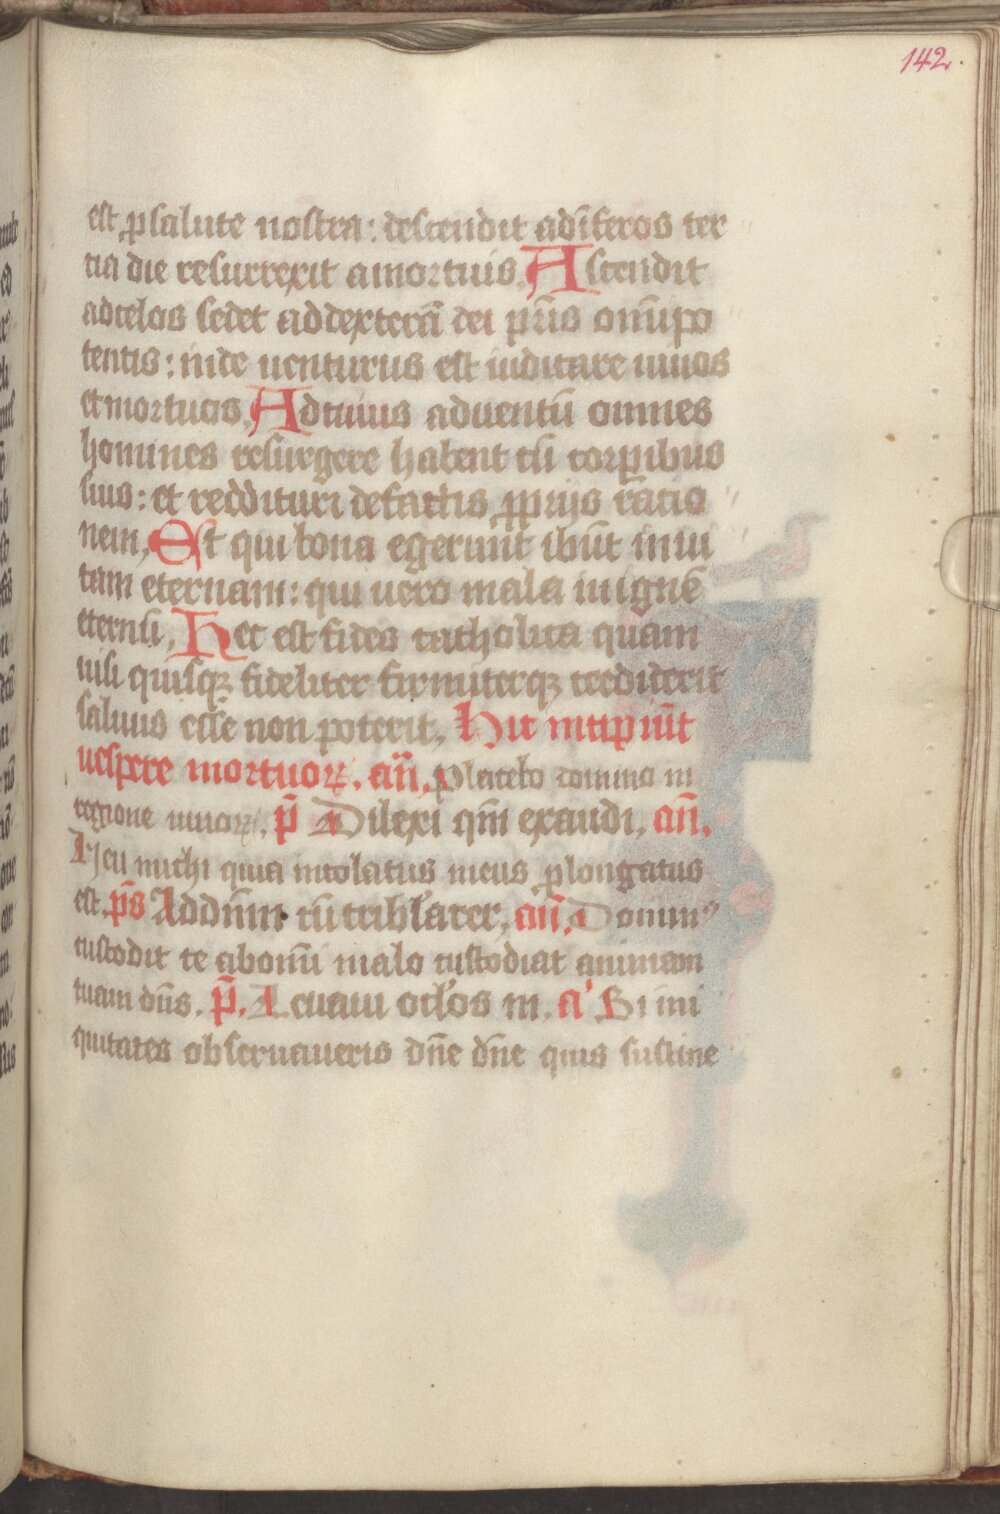 142.
est ꝑ salute nostra: descendit ad īferos ter
tia die resurrexit a mortuis. Ascendit
ad celos sedet ad dexterā dei pr̄is om̄ipo
tentis: inde uenturus est iudicare uiuos
et mortuos. Ad cuius aduentū omnes
homines resurgere habent cū corꝑibus
suis: et reddituri de factis ꝓprijs ratio
nem, Et qui bona egerunt ibūt in ui
tam eternam: qui uero mala in ignē
eternū, Hec est fides catholica quam
nisi quisqꝫ fideliter firmiterqꝫ crediderit
saluus esse non poterit, Hic incipiūt
uespere mortuoꝝ. an̄, Placebo domino in
regione uiuoꝝ, p̄ Dilexi qm̄ exaudi, an̄.
Heu michi quia incolatus meus ꝓlongatus
est, ps̄ Ad dn̄m cū tribl'arer, an̄, Dominꝰ
custodit te ab om̄i malo custodiat animam
tuam dn̄s. p̄. Leuaui oc'los m, a' Si ini
quitates obseruaueris dn̄e dn̄e quis sustine